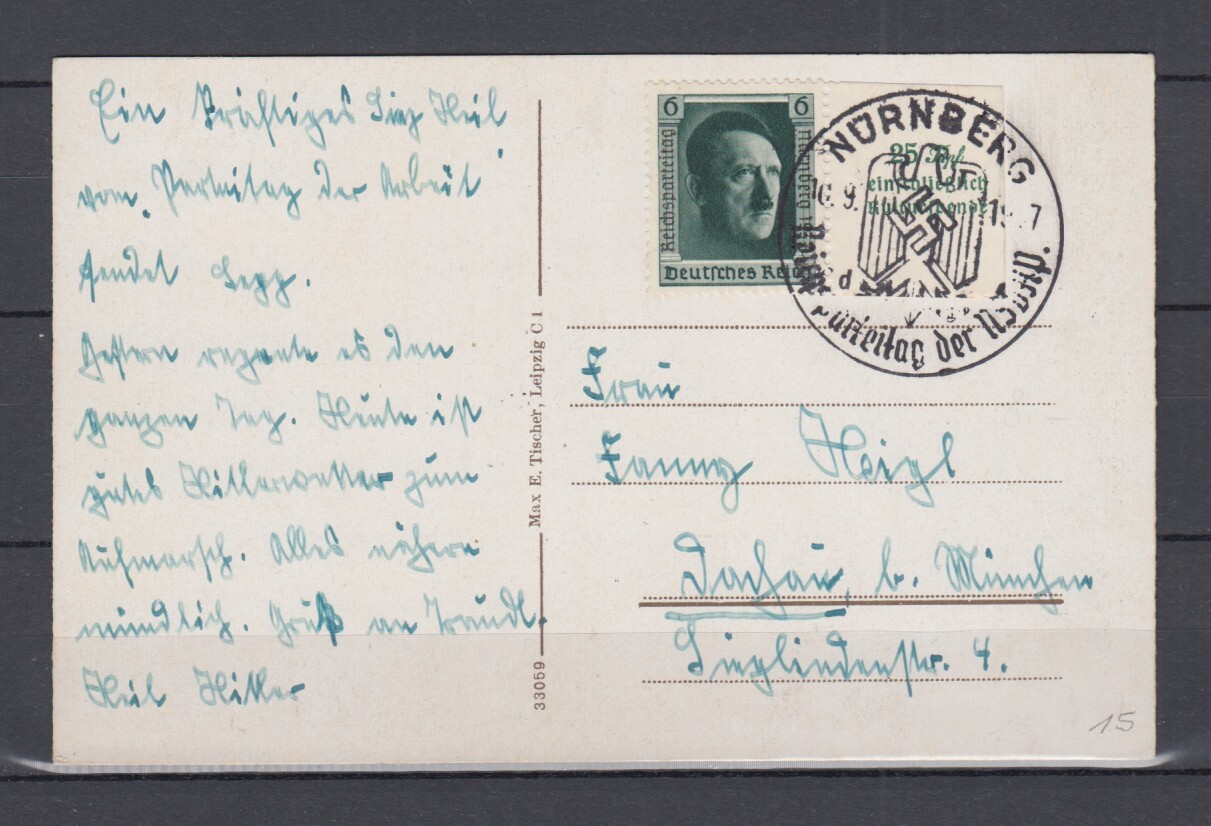 Ein kräftiges Sieg Heil
vom Parteitag der Arbeit
sendet Sepp.
Gestern regnete es den
ganzen Tag. Heute ist
gutes Hitlerwetter zum
Aufmarsch. Alles nähere
mündlich. Gruß an Traudl.
Heil Hitler
33059
Max E. Tischer, Leipzig C 1
6 6
Reichsparteitag
Deutsches Reich
25 Rpf.
einschließlich
Kulturspende
NÜRNBERG
10. 9. 1937
d
Reichsparteitag der NSDAP.
Frau
Fanny Heigl
Dachau, b. München
Sieglindenstr. 4.
15